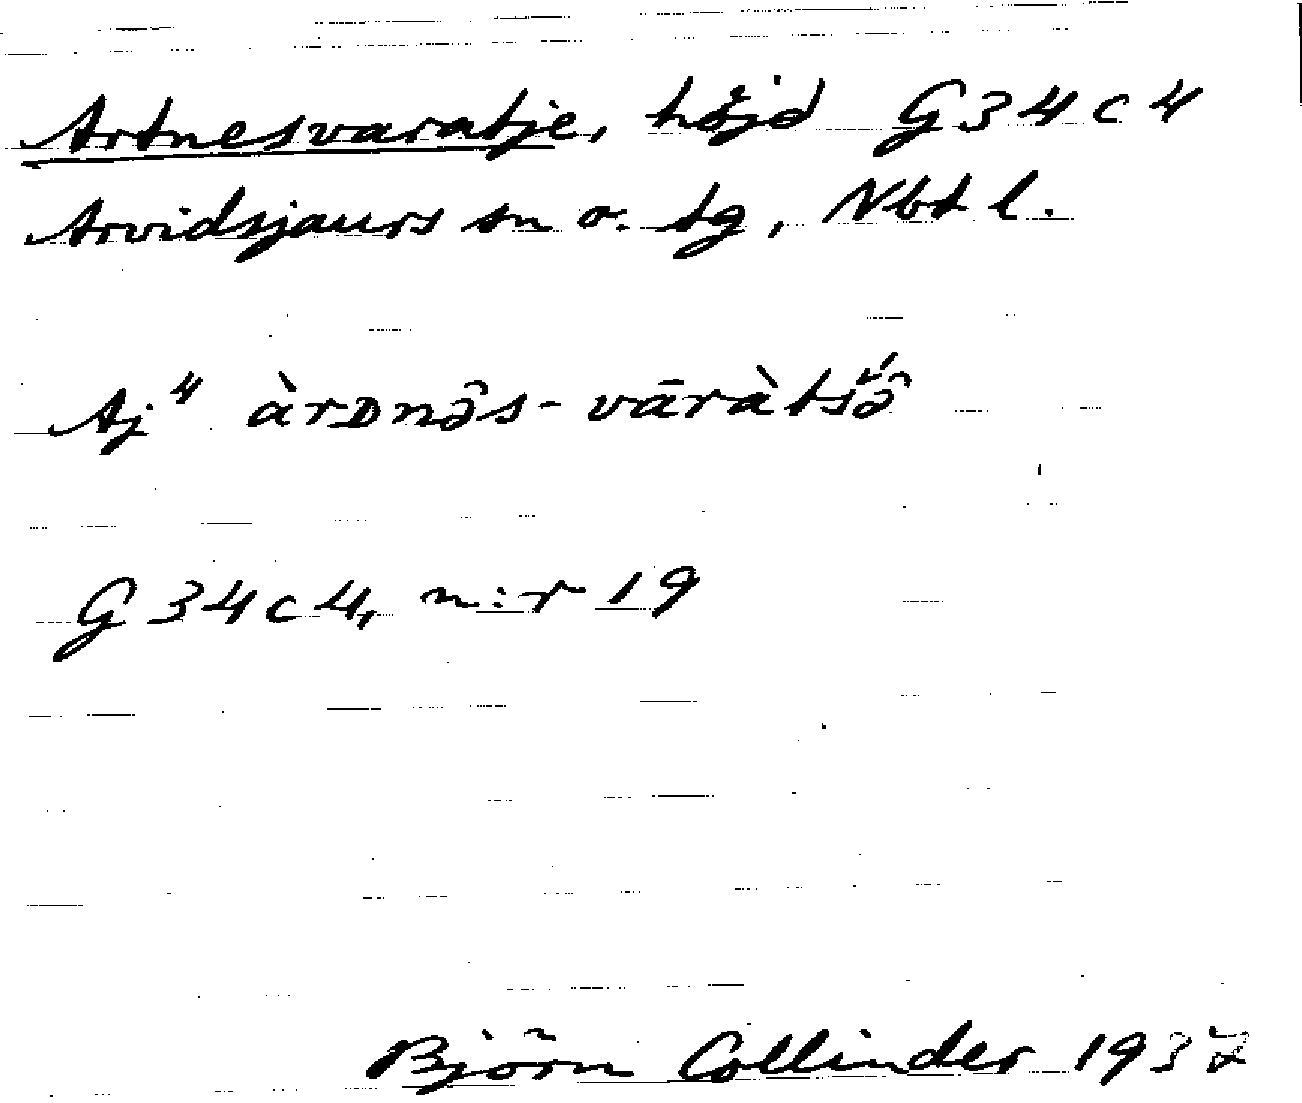 Artnesvaratje, höjd G34c4
Arvidsjaurs sn o. tg, Nbt l.
Aj⁴ àrᴅnə̑s-vāràtśə̑́
G34c4, n:r 19
Björn Collinder 1937